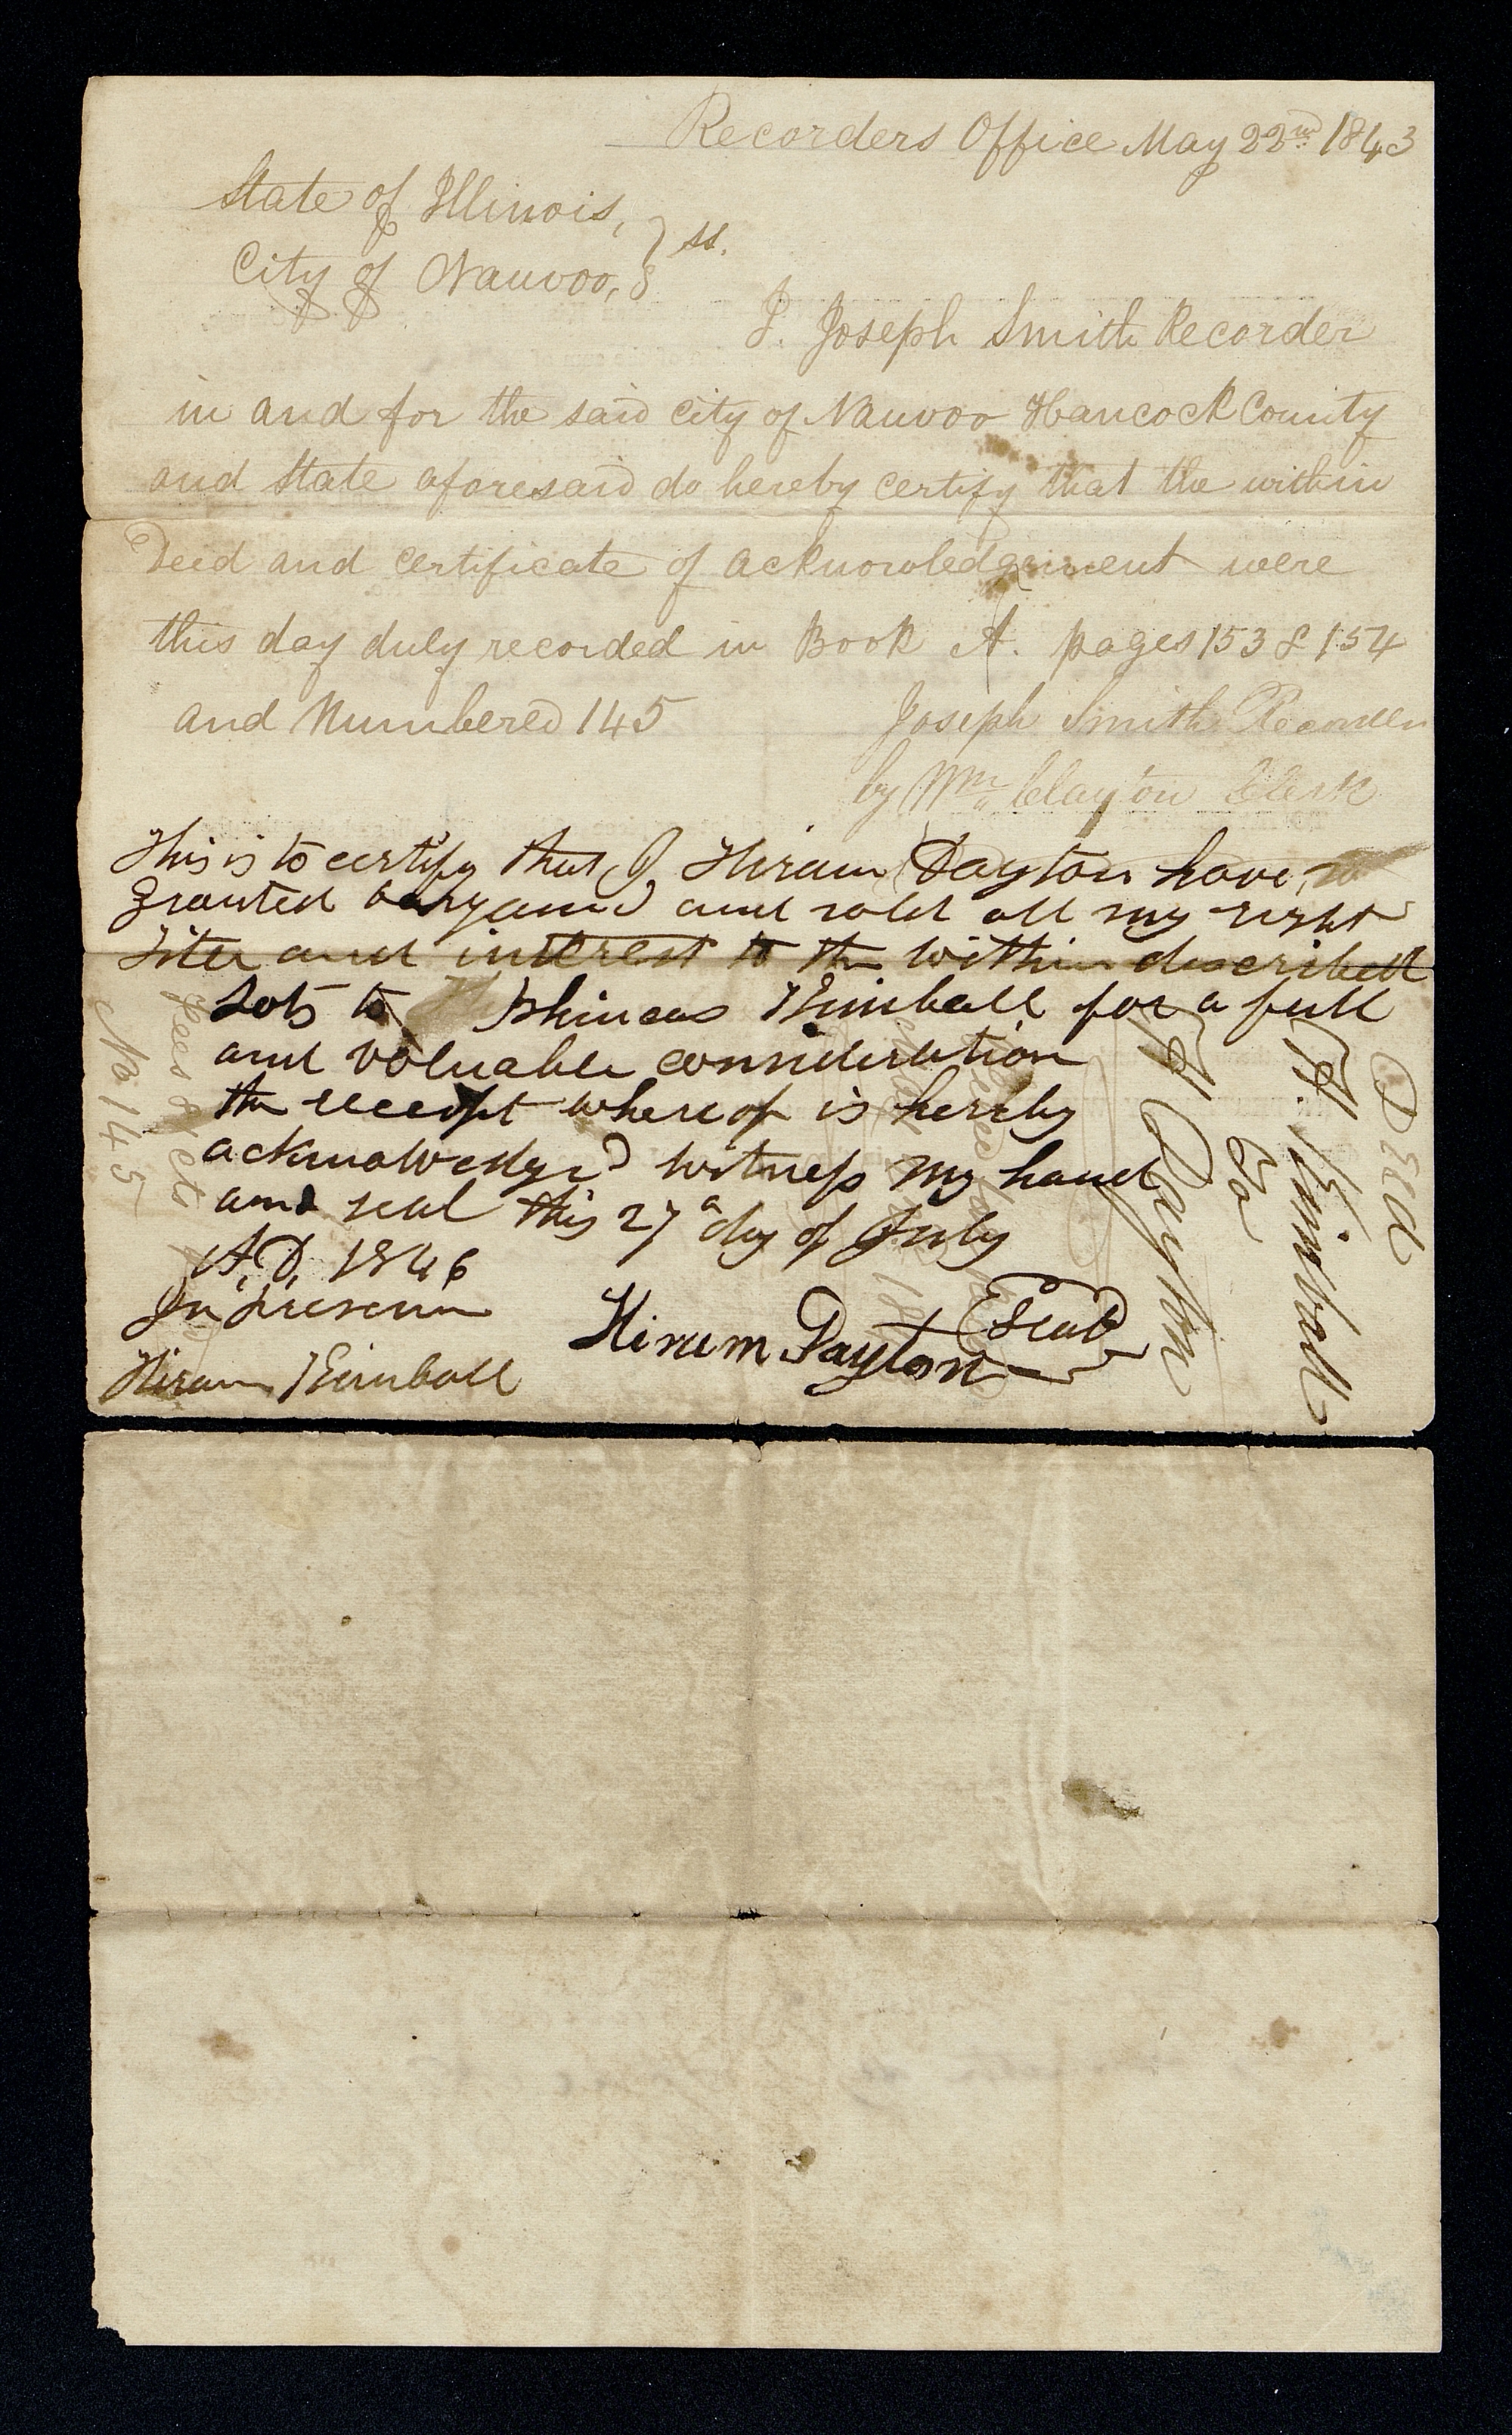 Recorders Office May 22nd 1843
State of Illinois,
City of Nauvoo, } ss.
I. Joseph Smith Recorder
in and for the said city of Nauvoo Hancock County
and State aforesaid do hereby certify that the within
Deed and certificate of acknowledgement were
this day duly recorded in Book A. pages 153 & 154
and Numbered 145
Joseph Smith Recorder
by Wm Clayton Clerk
This is to certify that I Hiram Dayton have
granted bargained and sold all my right
title and interest to the within described
Lots to Phineas Kimball for a full
and valuable consideration
the receipt whereof is hereby
acknowledged witness my hand
and seal this 27th day of July
A.D. 1846
In presence
Hiram Kimball
Hiram Dayton Seal
No 145
Deed
H. Kimball
To
H Dayton